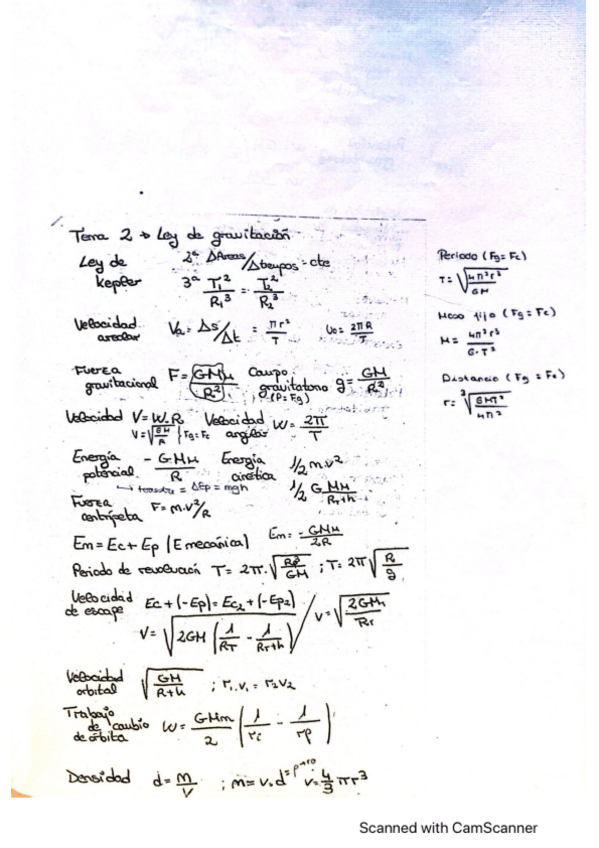 Tema 2 → Ley de gravitación
Ley de Kepler 2ª ΔAreas/Δtiempos = cte
3ª T₁²/R₁³ = T₂²/R₂³
Velocidad areolar Va = Δs/Δt = πr²/T Vo = 2πR/T
Fuerza gravitacional F = GMm/R² Campo gravitatorio g = GM/R²
(P=Fg)
Velocidad V = W.R Velocidad angular W = 2π/T
V = √(GM/R) } Fg = Fc
Energía potencial - GMm/R Energía cinética 1/2 m.v²
= ΔEp = mgh 1/2 G Mm/(RT+h)
Fuerza centrípeta F = m.v²/R
Em = Ec + Ep (E mecánica) Em = -GMm/2R
Periodo de revolución T = 2π.√(R³/GM) ; T = 2π√(R/g)
Velocidad de escape Ec + (-Ep) = Ec₂ + (-Ep₂)
V = √(2GM (1/RT - 1/(RT+h))) / V = √(2GM/RT)
Velocidad orbital √(GM/(R+h)) ; r₁.v₁ = r₂v₂
Trabajo de cambio de órbita W = GMm/2 (1/ri - 1/rf)
Densidad d = m/v ; m = v.d v = 4/3 πr³
Periodo (Fg = Fc)
T = √(4π²r³/GM)
Masa fijo (Fg = Fc)
M = 4π²r³/G.T²
Distancia (Fg = Fc)
r = ³√(GMT²/4π²)
Scanned with CamScanner